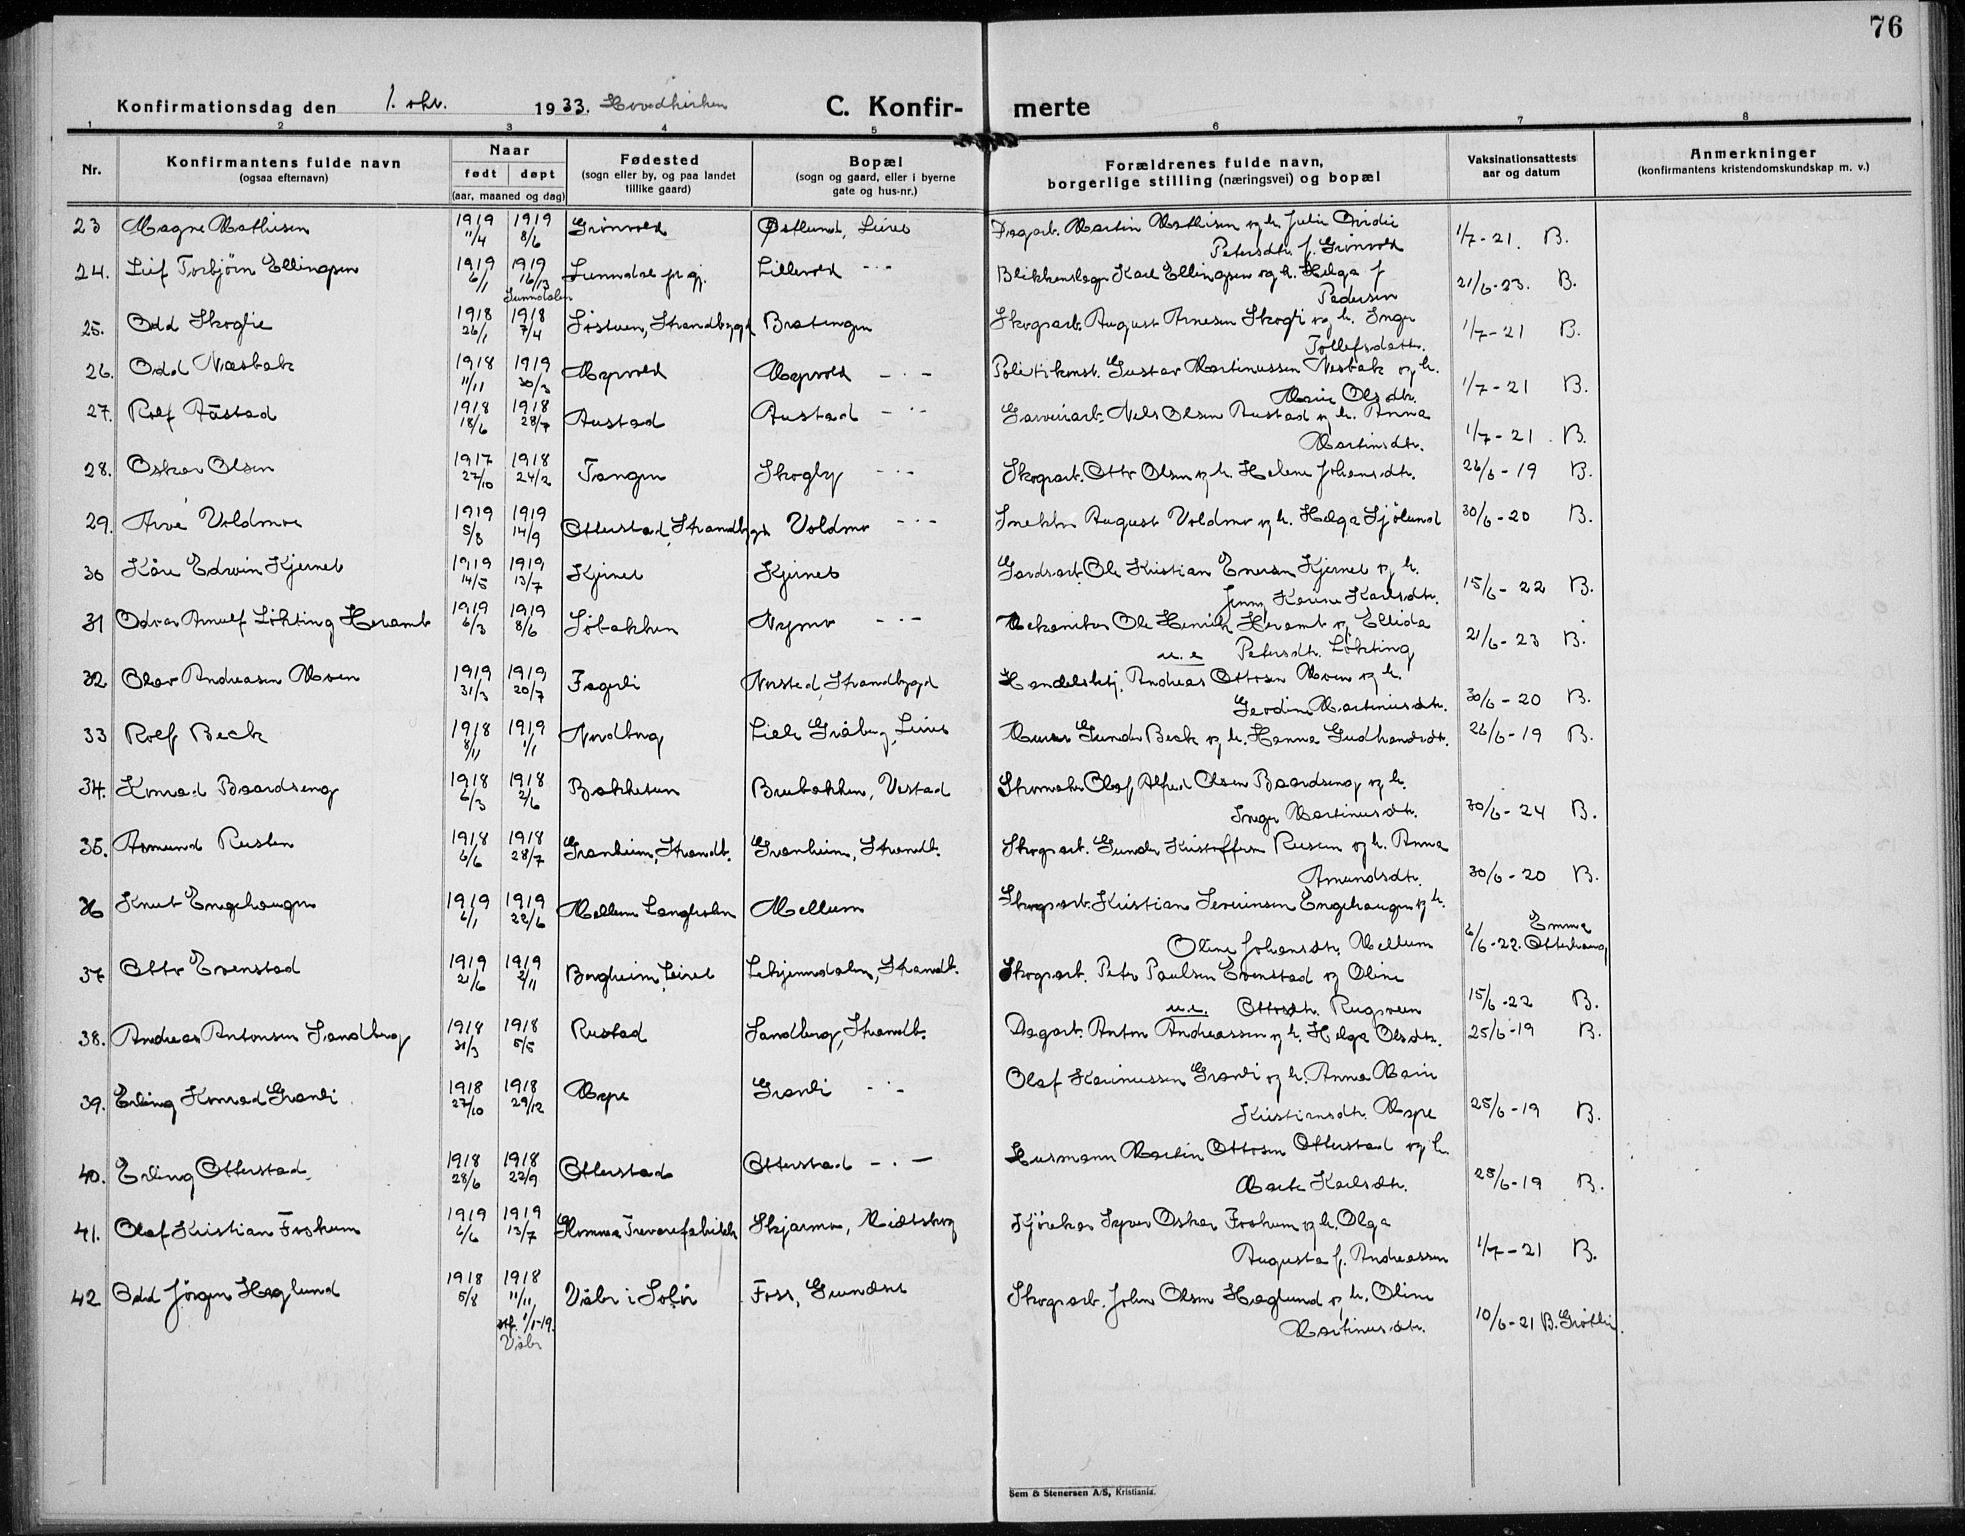 76
Konfirmationsdag den 1. okt. 1933. Hovedkirken C. Konfir- merte
1 2 3 4 5 6 7 8
Nr. Konfirmantens fulde navn (ogsaa efternavn) Naar født døpt (aar, maaned og dag) Fødested (sogn eller by, og paa landet tillike gaard) Bopæl (sogn og gaard, eller i byerne gate og hus-nr.) Forældrenes fulde navn, borgerlige stilling (næringsvei) og bopæl Vaksinationsattests aar og datum Anmerkninger (konfirmantens kristendomskundskap m. v.)
23 Magne Mathisen 1919 11/4 1919 8/6 Grønvold Østlund, Leiret Dagarb. Martin Mathisen og h. Julie
Petersdtr. f. Grønvold 1/7-21. B.
24. Leif Torbjørn Ellingsen 1919 6/1 1919 16/13 Sunndalen Sunndal pr gj. Lillevold -"- Blikkenslager Karl Ellingsen og h. Helga f
Pedersen 21/6-23. B.
25. Odd Skoglie 1918 26/1 1918 7/4 Søstuen, Strandbygd Bratengen Skogsarb. August Arnesen Skogli og h. Inger
Tollefsdatr. 1/7-21 B.
26. Odd Næsbak 1918 11/11 1919 30/3 Myrvold Myrvold -"- Politikonst. Gustav Martinussen Nesbak og h.
Marie Olsdtr. 1/7-21 B.
27. Rolf Åstad 1918 18/6 1918 28/7 Austad Austad -"- Garveriarb. Nels Olsen Austad og h. Anna
Martinsdtr. 1/7-21. B.
28. Oskar Olsen 1917 27/10 1918 24/2 Tangen Skogly -"- Skogsarb. Otto Olsen og h. Helene Johansdtr. 26/6-19 B.
29. Arve Voldmoe 1919 5/8 1919 14/9 Otterstad, Strandbygd Voldmo -"- Snekker August Voldmo og h. Helga Sjølund 30/6-20 B.
30 Kåre Edvin Kjernet 1919 14/5 1919 13/7 Kjernet Kjernet Gardsarb. Ole Kristian Enersen Kjernet og h.
Jenny Karine Karlsdtr. 15/6-22 B.
31 Odvar Arnulf Løkting Heramb 1919 6/3 1919 8/6 Søbakken Nymo -"- Mekaniker Ole Henrik Heramb og Ellida
u.e Petersdtr. Løkting 21/6-23 B.
32 Olav Andreasen Moen 1919 31/3 1919 20/7 Fagerli Nersted, Strandbygd Handelsbetj. Andreas Ottosen Moen og h.
Gerdine Martiniusdtr. 30/6-20 B.
33 Rolf Beck 1918 8/11 1919 1/1 Nordberg Lille Gråberg, Leiret Murer Gunder Beck og h. Hanna Gudbrandsdtr. 26/6-19 B.
34. Konrad Baardseng 1918 6/3 1918 2/6 Bakketun Brubakken, Vestad Skomaker Olaf Alfred Olsen Baardseng og h.
Inger Martinusdtr. 30/6-24 B.
35. Asmund Rusten 1918 6/6 1918 28/7 Granheim, Strandb. Granheim, Strandb. Skogsarb. Gunder Kristoffersen Rusten og h. Anna
Amundsdtr. 30/6-20 B.
36 Knut Engehaugen 1919 6/1 1919 22/6 Mellem Langholen Mellum Skogsarb. Kristian Severinsen Engehaugen og h.
Oline Johansdtr. Mellum 6/6-22. Emma Otterhaug
37 Otto Evenstad 1919 21/6 1919 2/11 Borgheim, Leiret Lekjenndalen, Strandb. Skogsarb. Peter Paulsen Evenstad og Oline
u.e. Ottosdtr. Rugsveen 15/6-22 B.
38. Andreas Antonsen Sandberg 1918 31/3 1918 5/5 Rustad Sandberg, Strandb. Dagarb. Anton Andreassen og h. Helga Olsdtr. 25/6-19 B.
39. Erling Konrad Granli 1918 27/10 1918 29/12 Mype Granli -"- Olaf Karinussen Granli og h. Anna Marie
Kristiansdtr. Mype 25/6-19 B.
40. Erling Otterstad 1918 28/6 1918 22/9 Otterstad Otterstad -"- Husmann Martin Ottosen Otterstad og h.
Marte Karlsdtr. 25/6-19 B.
41. Olaf Kristian Froknem 1919 6/6 1919 13/7 Glomma Trevarefabrikk Skjarmo, Midtskog Kjørekar Syver Oskar og h. Olga
Augusta f. Andreassen 1/7-21 B.
42 Odd Jørgen Haglund 1918 5/8 1918 11/11 stf. 1/1-19. Våler Våler i Solør Foss, Grundset Skogsarb. John Olsen Haglund og h. Oline
Martinusdtr. 10/6-21 B. Grøtlie.
Sem & Stenersen A/S, Kristiania.